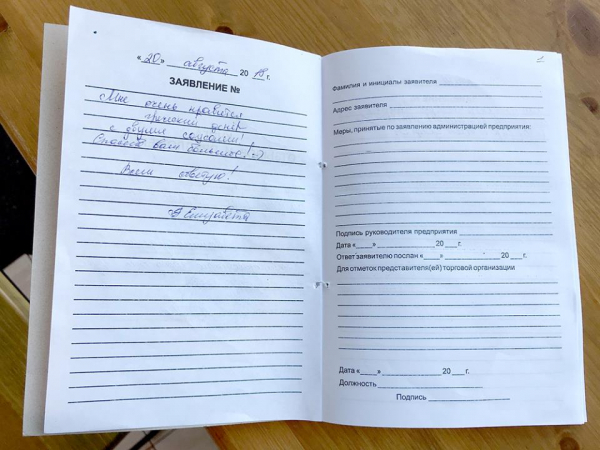 «20» августа 2018 г.
ЗАЯВЛЕНИЕ №
Мне очень нравится
греческий денер
с двумя соусами!
Спасибо вам большое! :-)
Всем советую!
Елизавета
Фамилия и инициалы заявителя
Адрес заявителя
Меры, принятые по заявлению администрацией предприятия:
Подпись руководителя предприятия
Дата «____» 20 ___ г.
Ответ заявителю послан «____» 20 ___ г.
Для отметок представителя(ей) торговой организации
Дата «____» 20 ___ г.
Должность
Подпись